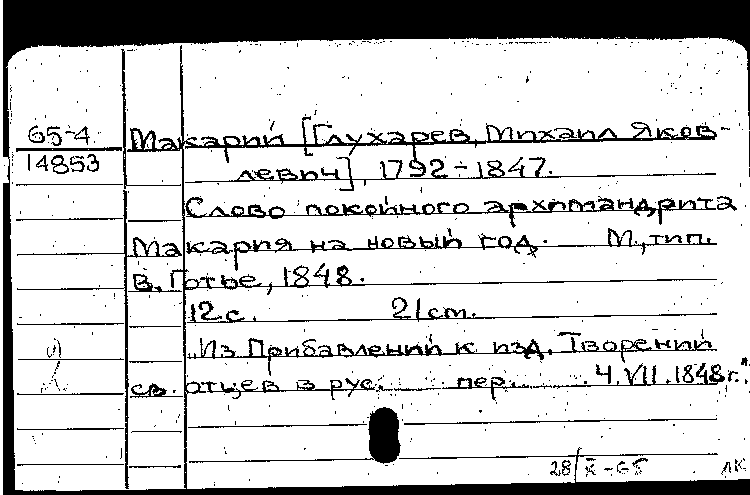 65-4
14853
Макарий [Глухарев, Михаил Яков-
левич], 1792-1847.
Слово покойного архимандрита
Макария на новый год. М., тип.
В. Готье, 1848.
12 с. 21 cm.
„Из Прибавлений к изд. Творений
св. отцев в рус. пер. 4.VII.1848 г."
2
28/X-65 ЛК